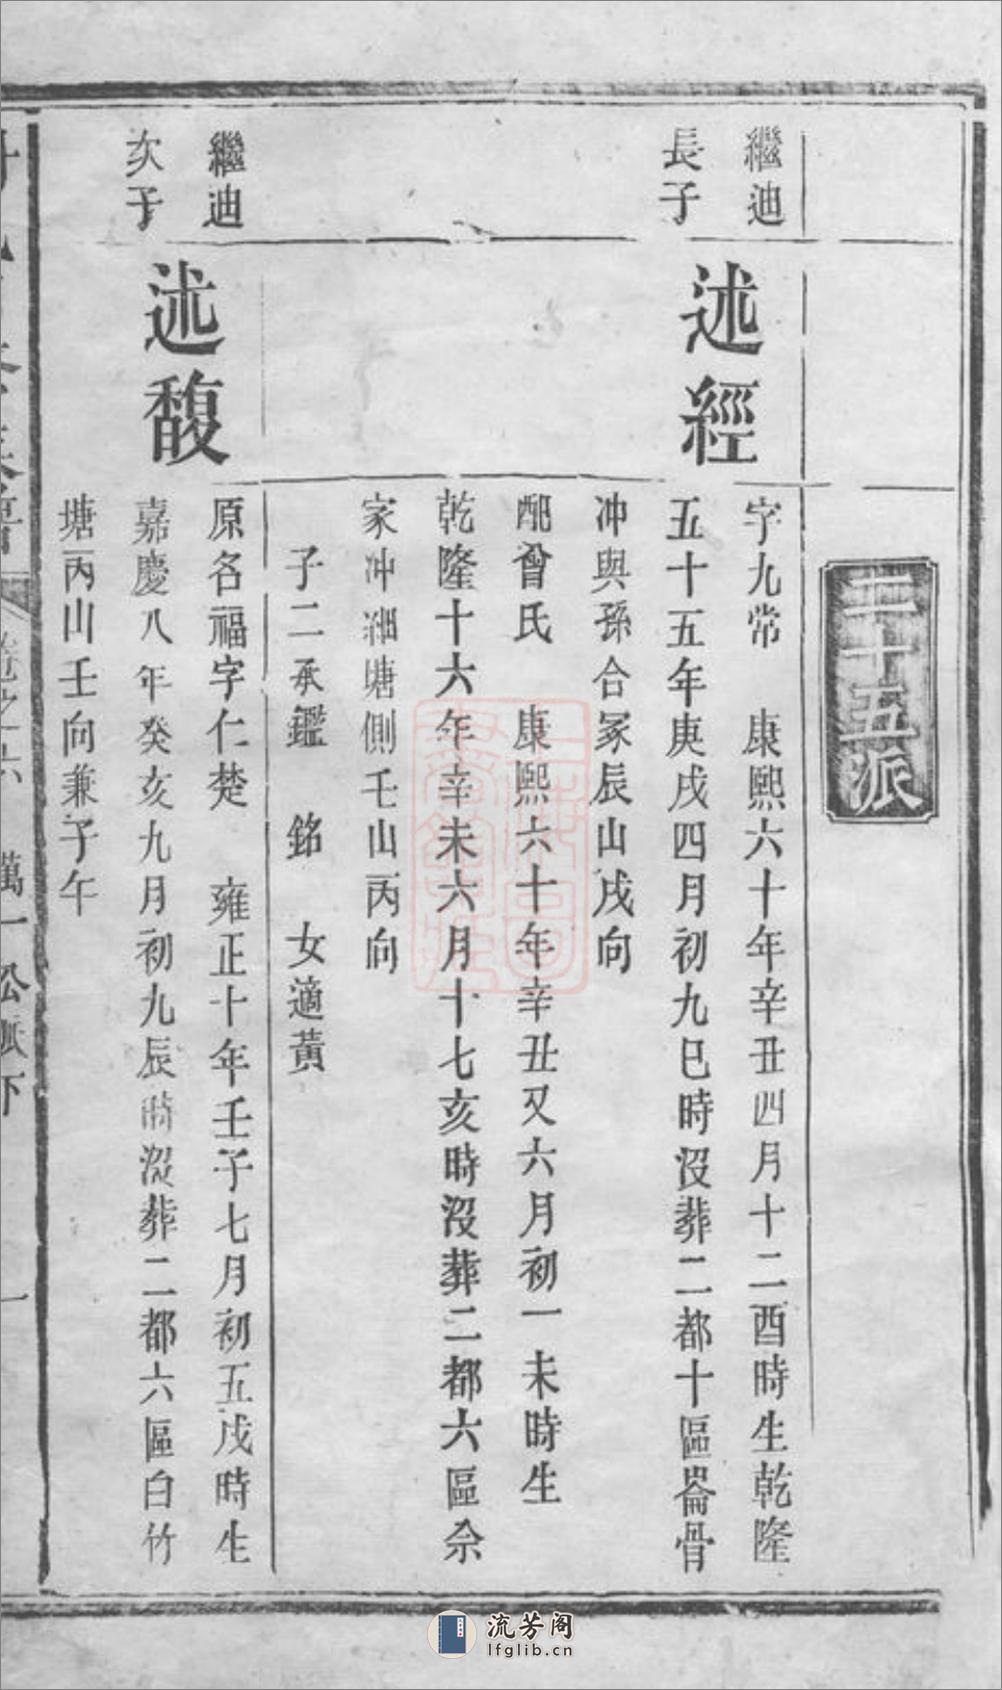 二十五派
繼迪
長子
述經
字九常 康熙六十年辛丑四月十二酉時生乾隆
五十五年庚戌四月初九巳時沒葬二都十區崙骨
冲與孫合冢辰山戌向
配曾氏 康熙六十年辛丑又六月初一未時生
乾隆十六年辛未六月十七亥時沒葬二都六區佘
家冲塘側壬山丙向
子二承鑑 銘 女適黃
繼迪
次子
述馥
原名福字仁楚 雍正十年壬子七月初五戌時生
嘉慶八年癸亥九月初九辰時沒葬二都六區白竹
塘丙山壬向兼子午
卷之六 萬一公派下 一
流芳阁
lfglib.cn